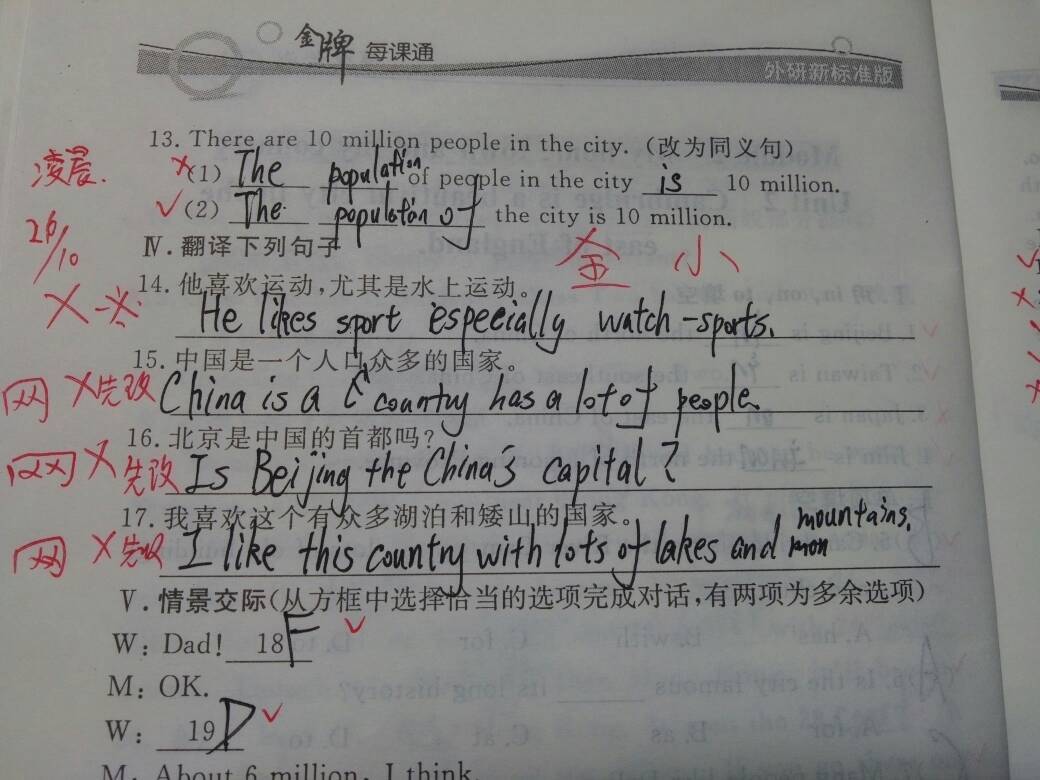 金牌 每课通
外研新标准版
13. There are 10 million people in the city. (改为同义句)
凌晨.
×(1) The population of people in the city is 10 million.
✓(2) The populaton of the city is 10 million.
26/10
Ⅳ. 翻译下列句子
14. 他喜欢运动,尤其是水上运动。
× He likes sport especially watch-sports.
15. 中国是一个人口众多的国家。
网 ×先改 China is a country has a lot of people.
16. 北京是中国的首都吗?
网 × 先改 Is Beijing the China's capital?
17. 我喜欢这个有众多湖泊和矮山的国家。
网 ×先改 I like this country with lots of lakes and mon mountains.
Ⅴ. 情景交际(从方框中选择恰当的选项完成对话,有两项为多余选项)
W: Dad! 18 F ✓
M: OK.
W: 19 D ✓
M: About 6 million, I think.